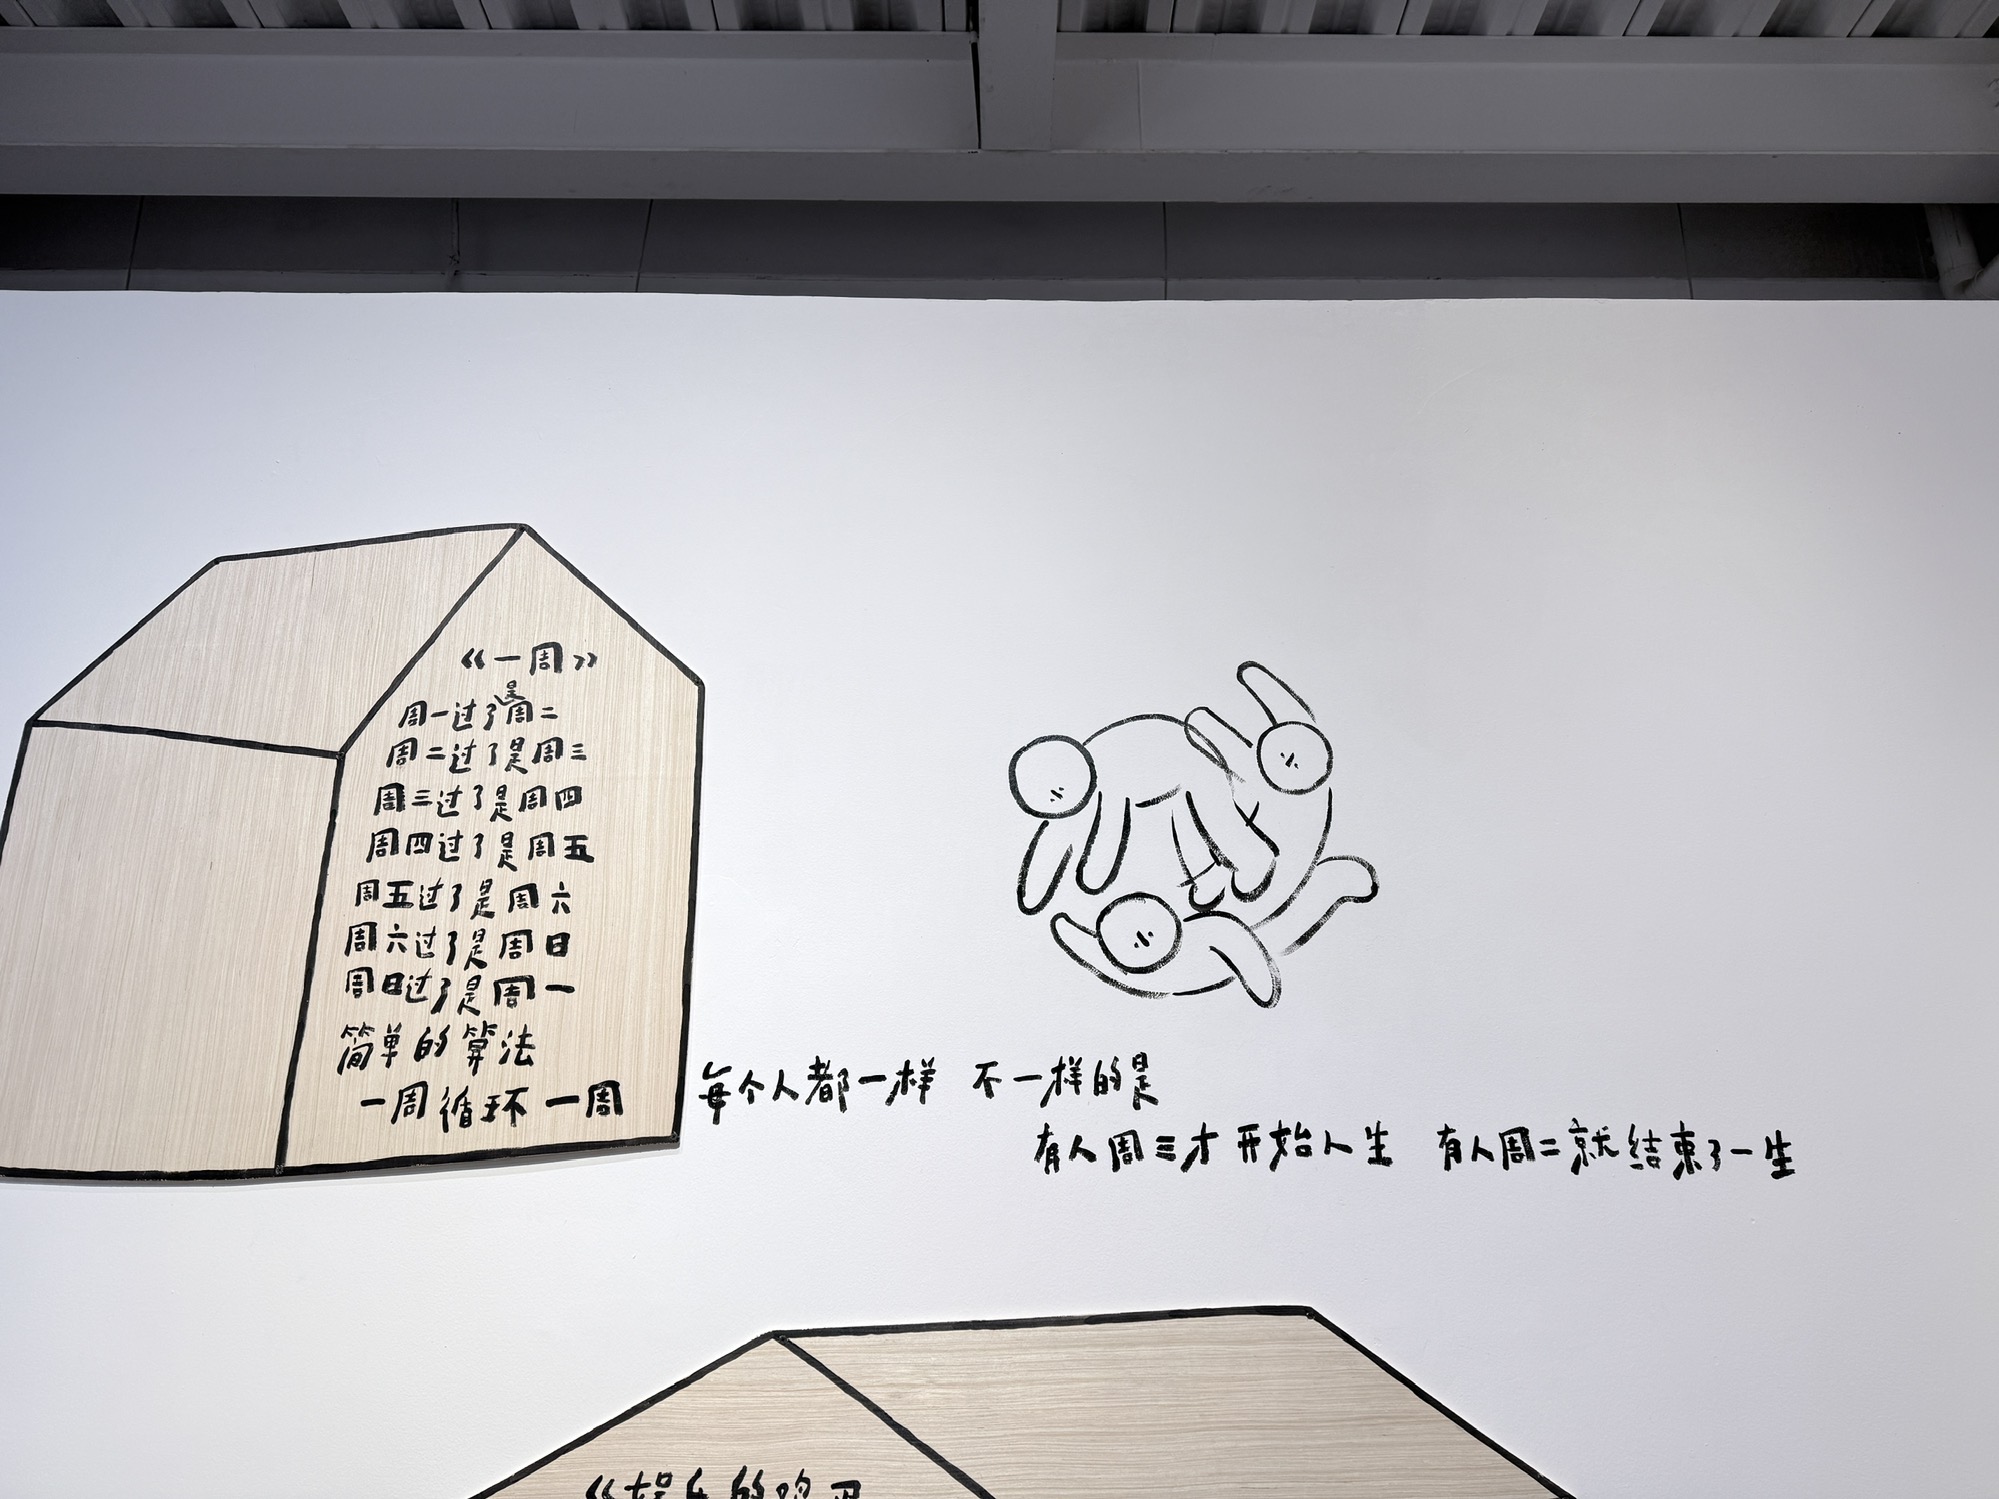 《一周》
周一过了是周二
周二过了是周三
周三过了是周四
周四过了是周五
周五过了是周六
周六过了是周日
周日过了是周一
简单的算法
一周循环一周
每个人都一样 不一样的是
有人周三才开始人生 有人周二就结束了一生